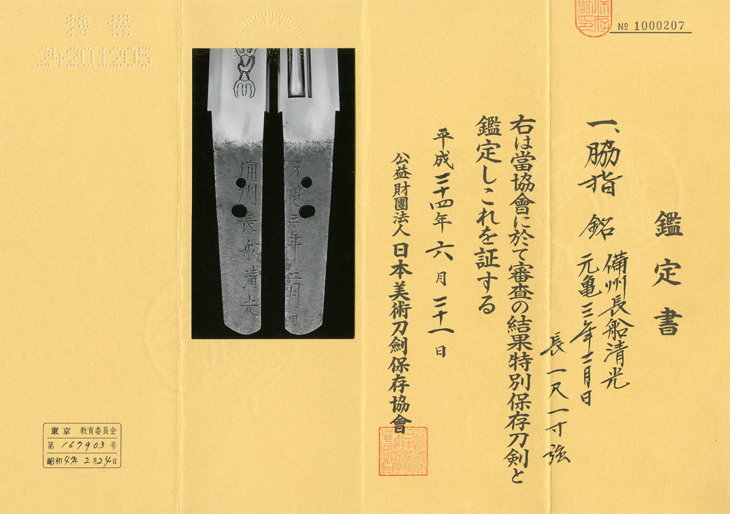 № 1000207
鑑定書
一、脇指 銘 備州長船清光
元亀三年二月日
長 一尺一寸強
右は當協會に於て審査の結果特別保存刀剣と
鑑定しこれを証する
平成二十四年六月二十一日
公益財團法人 日本美術刀劍保存協會
備州長船清光
元亀三年二月日
24201205
東京 教育委員会
第167903号
昭和47年2月24日